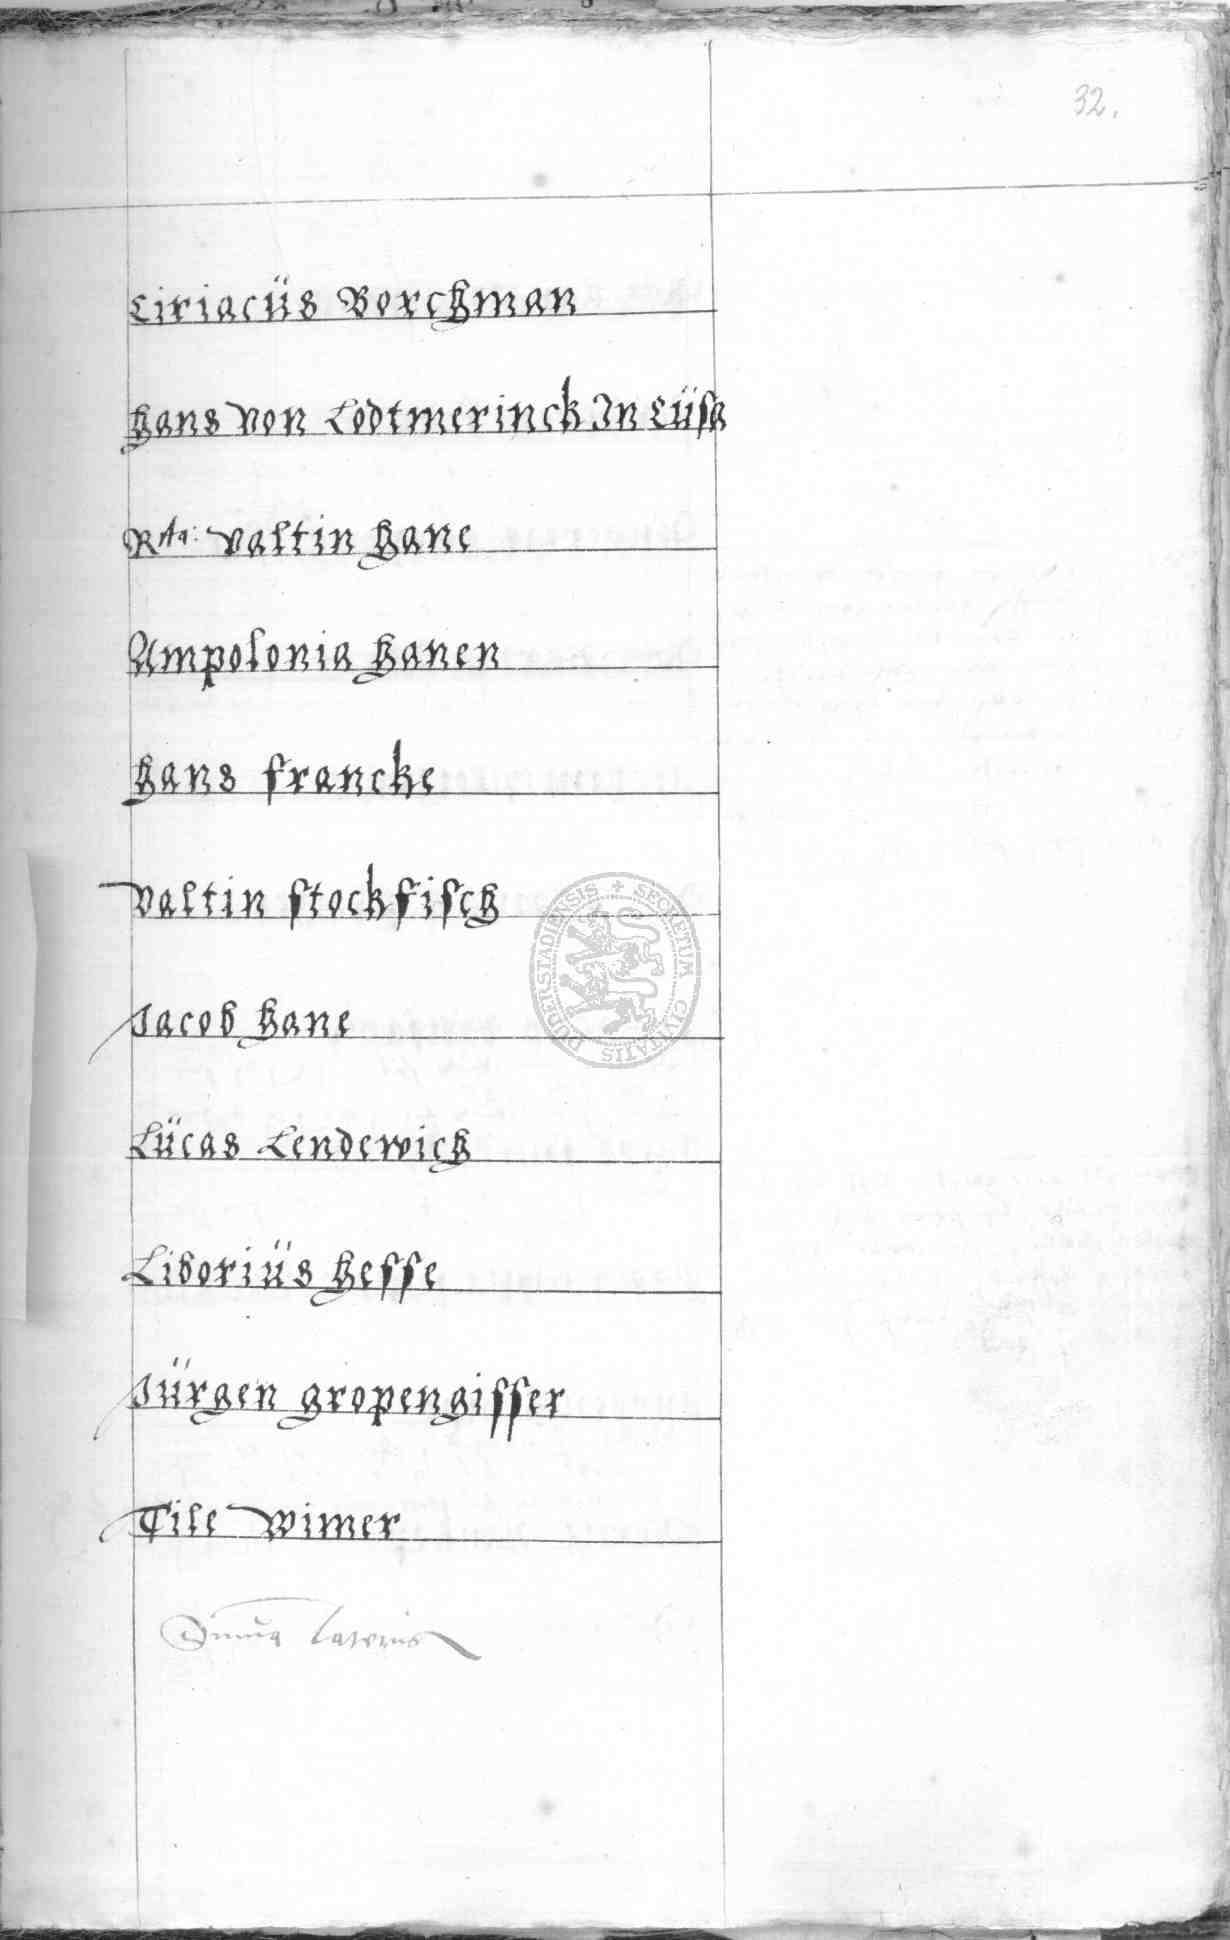 32.
Ciriacüs Borchman
Hans von Lodtmerinck In Cüsa
Valtin Hane
Ampolonia Hanen
Hans francke
Valtin stockfisch
Jacob Hane
SECRETUM CIVITATIS DUDERSTADIENSIS
Lücas Lendewich
Liboriüs Hesse
Jürgen gropengisser
Tile Wimer
Suma Lateris